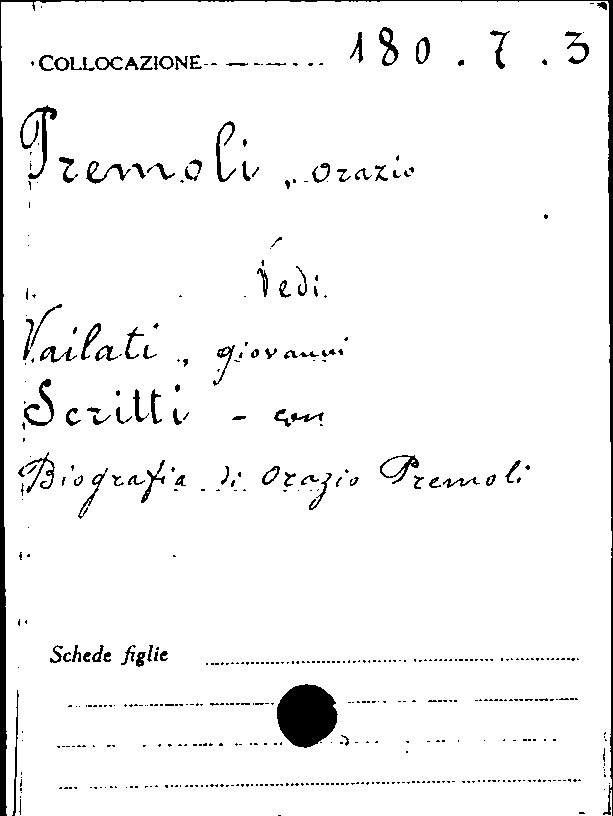 COLLOCAZIONE 180.7.3
Premoli, Orazio
Vedi
Vailati, giovanni
Scritti - con
Biografia di Orazio Premoli
Schede figlie